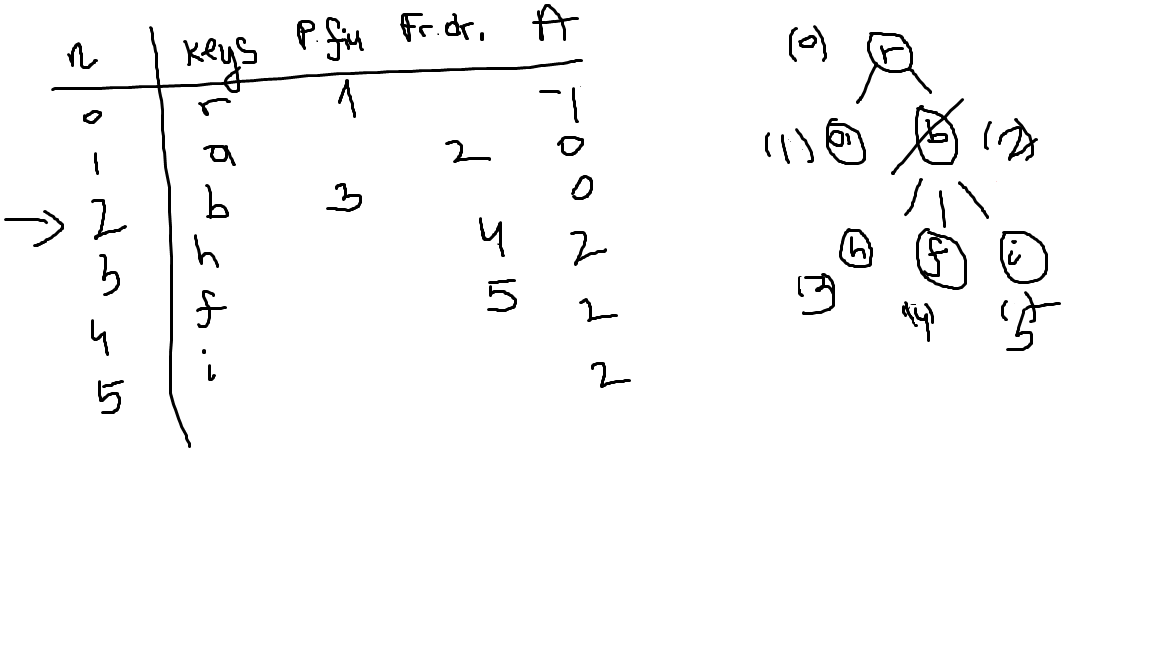 n keys P. fiu Fr. dr. A
0 r 1 -1
1 a 2 0
2 b 3 0
3 h 4 2
4 f 5 2
5 i 2
(0) r
(1) a b (2)
h f i
(3) (4) (5)